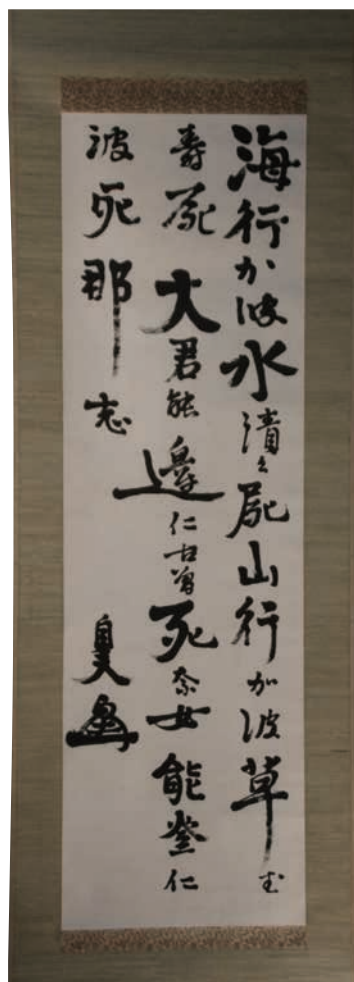 海行か波水漬く屍山行加波草む
壽屍大君能邊仁古曽死奈女能登仁
波死那志